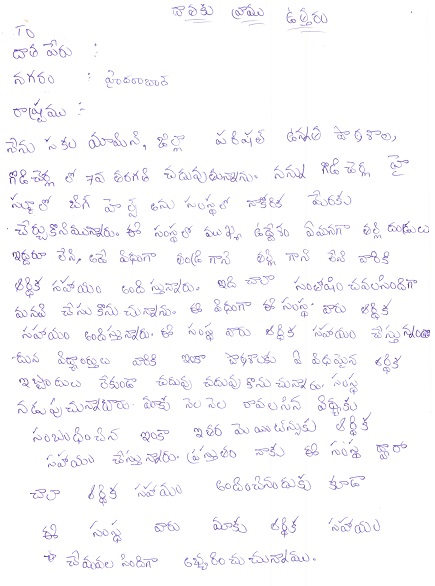 దాతకు వ్రాయు ఉత్తరం
TO
దాత పేరు :
నగరం : హైదరాబాద్
రాష్ట్రము :-
నేను సకల యామిని, జిల్లా పరిషత్ ఉన్నత పాఠశాల,
గొడిచెర్ల లో 7వ తరగతి చదువుతున్నాను. నన్ను గొడిచెర్ల హై
స్కూలో బిగ్ హెల్ప్ అను సంస్థలో కోరిక మేరకు
చేర్చుకొనియున్నారు. ఈ సంస్థలో ముఖ్య ఉద్దేశం ఏమనగా తల్లి దండ్రులు
ఇద్దరూ లేని, అదే విధంగా తండ్రి గాని తల్లి గాని లేని వారికి
ఆర్థిక సహాయం అందిస్తున్నారు. ఇది చాలా సంతోషించవలసిందిగా
మనవి చేసుకొనుచున్నాను. ఈ విధంగా ఈ సంస్థ వారు ఆర్థిక
సహాయం అందిస్తున్నారు. ఈ సంస్థ వారు ఆర్థిక సహాయం చేస్తున్నందు
విద్యార్థులు వారికి ఇంకా పాఠశాలకు ఏ విధమైన ఆర్థిక
ఇబ్బందులు లేకుండా చదువు చదువుకొనుచున్నారు. సంస్థ
నడుపుచున్నారు. మాకు నెల నెల రావలసిన విద్యకు
సంబంధించిన ఇంకా ఇతర మెయింటెన్స్‌కు ఆర్థిక
సహాయం చేస్తున్నారు. ప్రస్తుతం నాకు ఈ సంస్థ ద్వారా
చాలా ఆర్థిక సహాయం అందించినందుకు కూడా
ఈ సంస్థ వారు మాకు ఆర్థిక సహాయం
చేయవలసిందిగా అభ్యర్థించుచున్నాము.